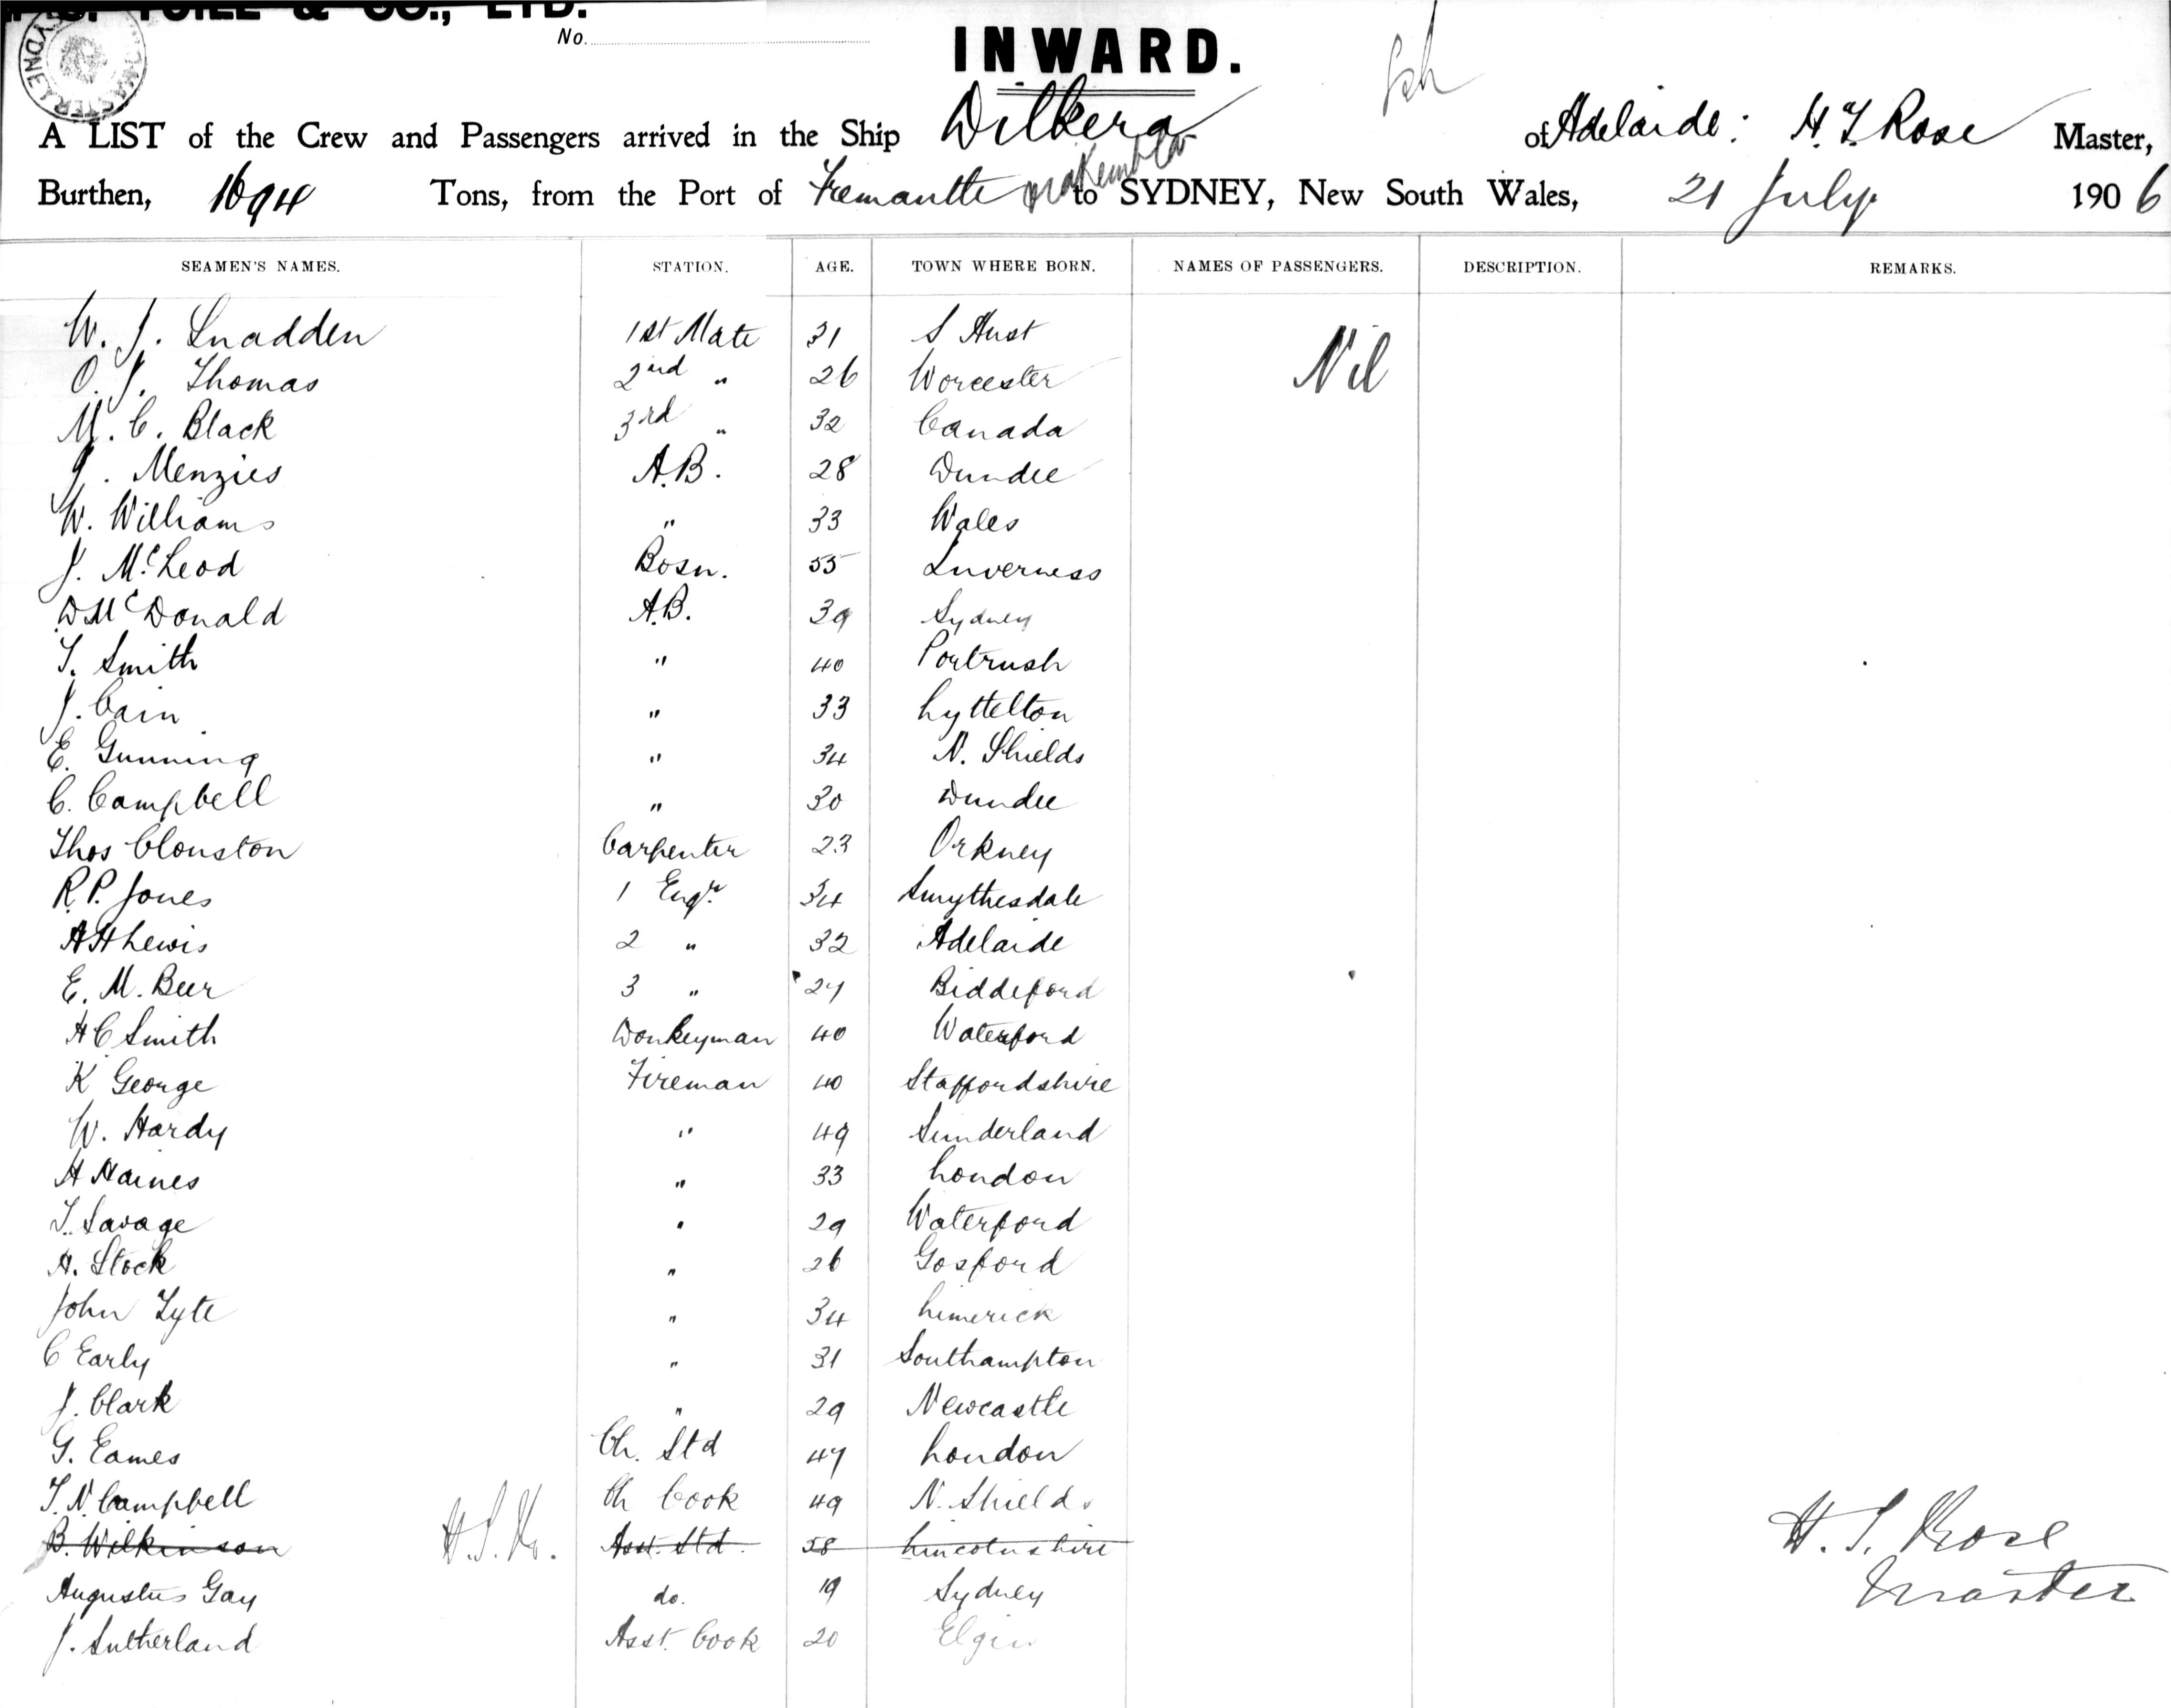 & CO., LTD.
No.
INWARD.
A LIST of the Crew and Passengers arrived in the Ship Dilkera of Adelaide: H. S. Rose Master,
Burthen, 1694 Tons, from the Port of Fremantle to SYDNEY, New South Wales, 21 July. 1906
SEAMEN'S NAMES. STATION. AGE. TOWN WHERE BORN. NAMES OF PASSENGERS. DESCRIPTION. REMARKS.
W. J. Snadden 1st Mate 31 S Aust
O. J. Thomas 2nd " 26 Worcester Nil
M. C. Black 3rd " 32 Canada
J. Menzies A.B. 28 Dundee
W. Williams " 33 Wales
J. McLeod Bosn. 55 Inverness
D McDonald A.B. 39 Sydney
T. Smith " 40 Portrush
J. Cain " 33 Lyttelton
E. Gunning " 34 N. Shields
C. Campbell " 30 Dundee
Thos Clouston Carpenter 23 Orkney
R. P. Jones 1 Engr. 34 Smythesdale
A H Lewis 2 " 32 Adelaide
E. M. Beer 3 " 27 Biddeford
H C Smith Donkeyman 40 Waterford
K George Fireman 40 Staffordshire
W. Hardy " 49 Sunderland
H Haines " 33 London
T. Savage " 29 Waterford
A. Stock " 26 Gosford
John Lyte " 34 Limerick
C Early " 31 Southampton
J. Clark " 29 Newcastle
G. Eames Ch. Std 47 London
T. N. Campbell Ch Cook 49 N. Shields
B. Wilkinson Asst. Std. 58 Lincolnshire H. S. Rose
Augustus Gay do. 19 Sydney Master
J. Sutherland Asst. Cook 20 Elgin